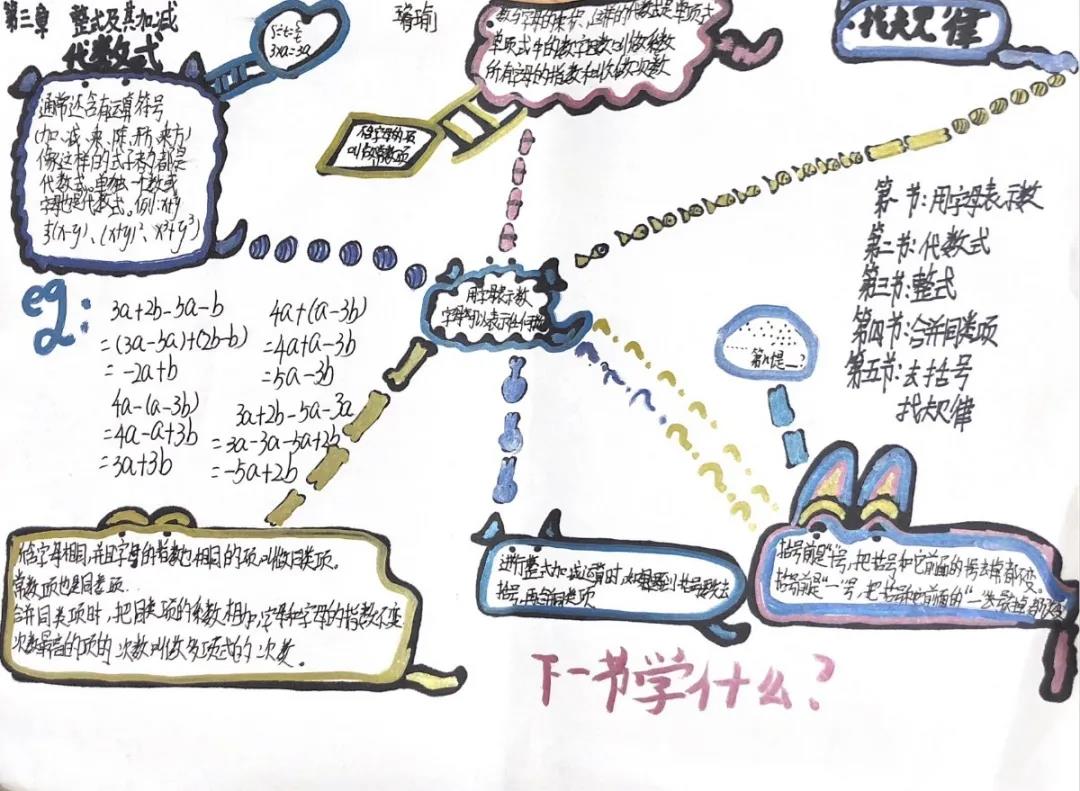 第三章 整式及其加减
代数式
通常还含有运算符号
(加、减、乘、除、乘方)
像这样的式子都是
代数式。单独一个数或
字母也是代数式。例:
(x+y)²
3×a=3a
单项式中的数字因数叫做系数
所有字母的指数和叫做次数
不含字母的项
叫做常数项
找规律
第一节:用字母表示数
第二节:代数式
第三节:整式
第四节:合并同类项
第五节:去括号
找规律
用字母表示数
字母可以表示任何数
eg:
3a+2b-5a-b
=(3a-5a)+(2b-b)
=-2a+b
4a+(a-3b)
=4a+a-3b
=5a-3b
4a-(a-3b)
=4a-a+3b
=3a+3b
3a+2b-5a-3a
=3a-3a-5a+2b
=-5a+2b
含字母相同,并且字母的指数也相同的项叫做同类项。
常数项也是同类项.
合并同类项时,把同类项的系数相加,字母和字母的指数不变
次数最高的项的次数叫做多项式的次数。
进行整式加减运算时,如果遇到括号要先去
括号,再合并同类项
括号前是"+"号,把括号和它前面的
括号前是"-"号,把括号和它前面的"-"
下一节学什么?